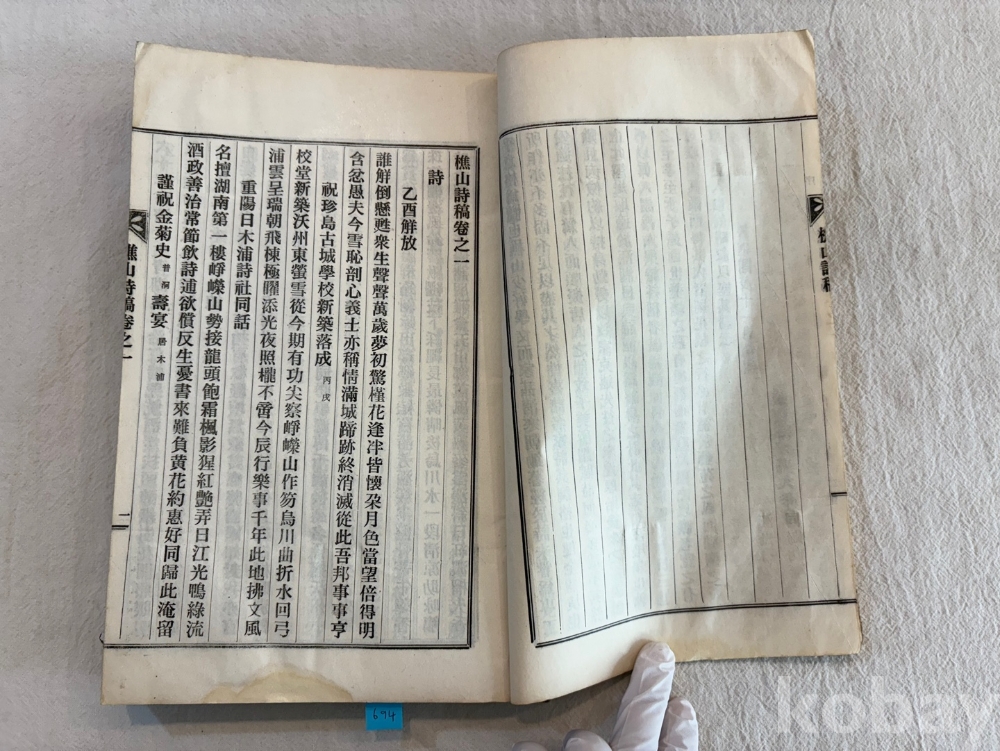 樵山詩稿
樵山詩稿卷之一
詩
乙酉解放
誰解倒懸甦衆生聲聲萬歲夢初驚槿花逢泮皆懷朶月色當望倍得明
含忿愚夫今雪恥剖心義士亦稱情滿城蹄跡終消滅從此吾邦事事亨
祝珍島古城學校新築落成 丙戌
校堂新築沃州東螢雪從今期有功尖察崢嶸山作笏鳥川曲折水回弓
浦雲呈瑞朝飛棟極曜添光夜照櫳不啻今辰行樂事千年此地拂文風
重陽日木浦詩社同話
名擅湖南第一樓崢嶸山勢接龍頭飽霜楓影猩紅艷弄日江光鴨綠流
酒政善治常節飮詩逋欲償反生憂書來難負黄花約惠好同歸此淹留
謹祝金菊史 壽宴 居木浦
樵山詩稿卷之一
一
694
kobay